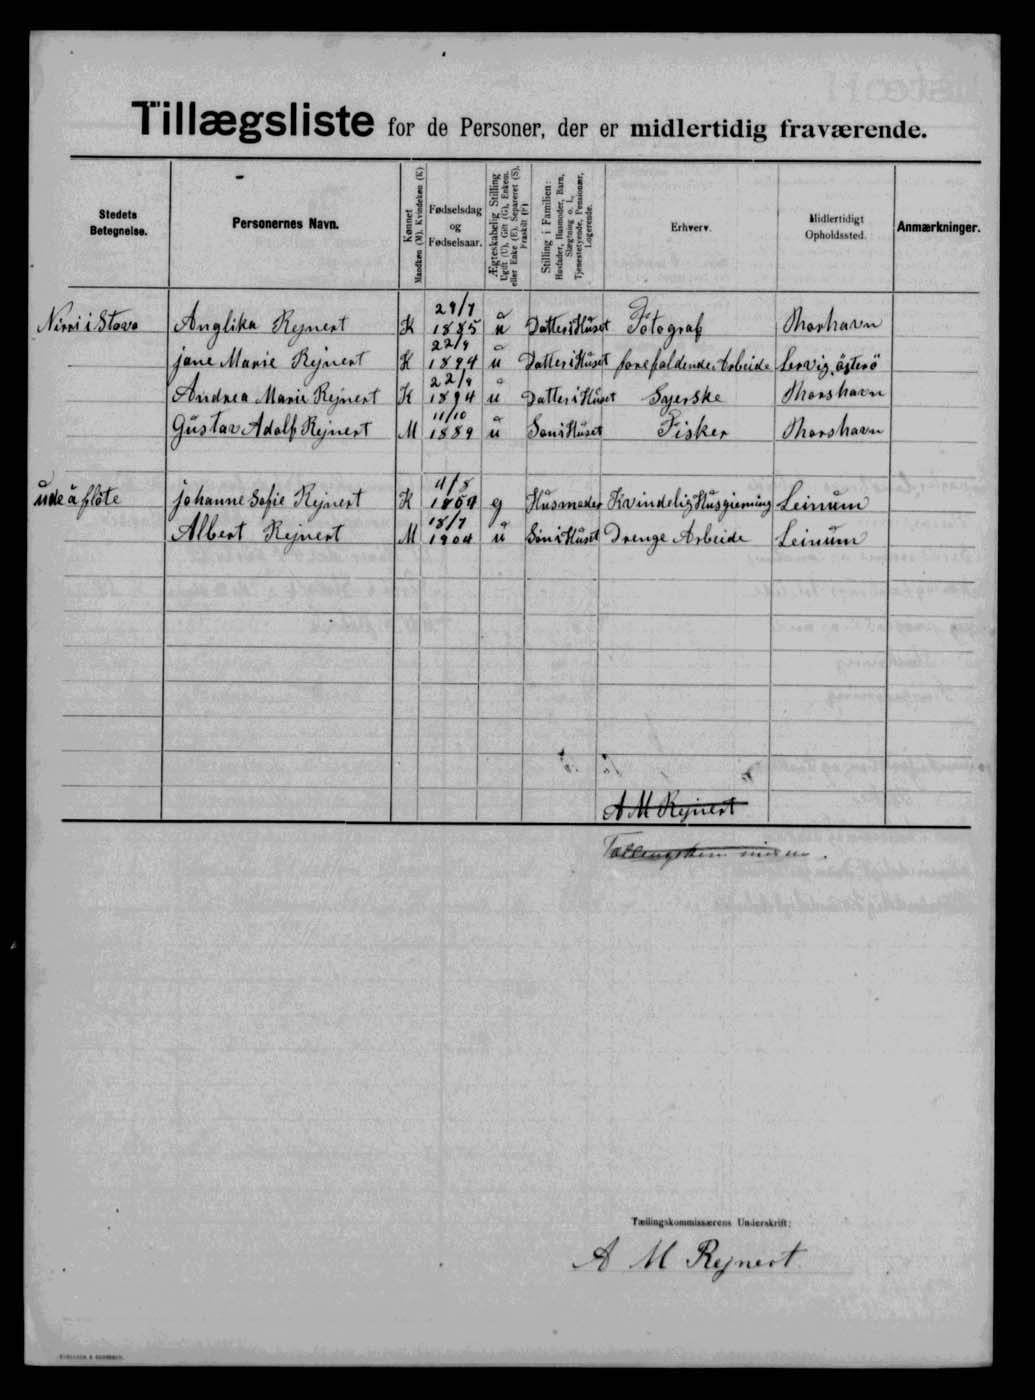 Tillægsliste for de Personer, der er midlertidig fraværende.
Stedets Betegnelse.
Personernes Navn.
Kønnet Mandkøn (M). Kvindekøn (K)
Fødselsdag og Fødselsaar.
Ægteskabelig Stilling Ugift (U), Gift (G), Enkem. eller Enke (E), Separeret (S), Fraskilt (F)
Stilling i Familien: Husfader, Husmoder, Barn, Slægtning o. l., Tjenestetyende, Pensionær, Logerende.
Erhverv.
Midlertidigt Opholdssted.
Anmærkninger.
Nirri i Stova Anglika Rejnert K 29/7 1885 u Datter i Huset Fotograf Thorhavn
jane Marie Rejnert K 22/9 1894 u Datter i Huset forefaldende Arbeide Lervig österö
Andrea Marie Rejnert K 22/9 1894 u Datter i Huset Syerske Thorshavn
Gustav Adolf Rejnert M 11/10 1889 u Søn i Huset Fisker Thorshavn
ude á fløte johanne Sofie Rejnert K 11/8 g Husmoder Kvindelig Husgierning Leinum
Albert Rejnert M 18/7 1904 u Søn i Huset Drenge Arbeide Leinum
A M Rejnert
Tællingskommissærens Underskrift:
A M Rejnert